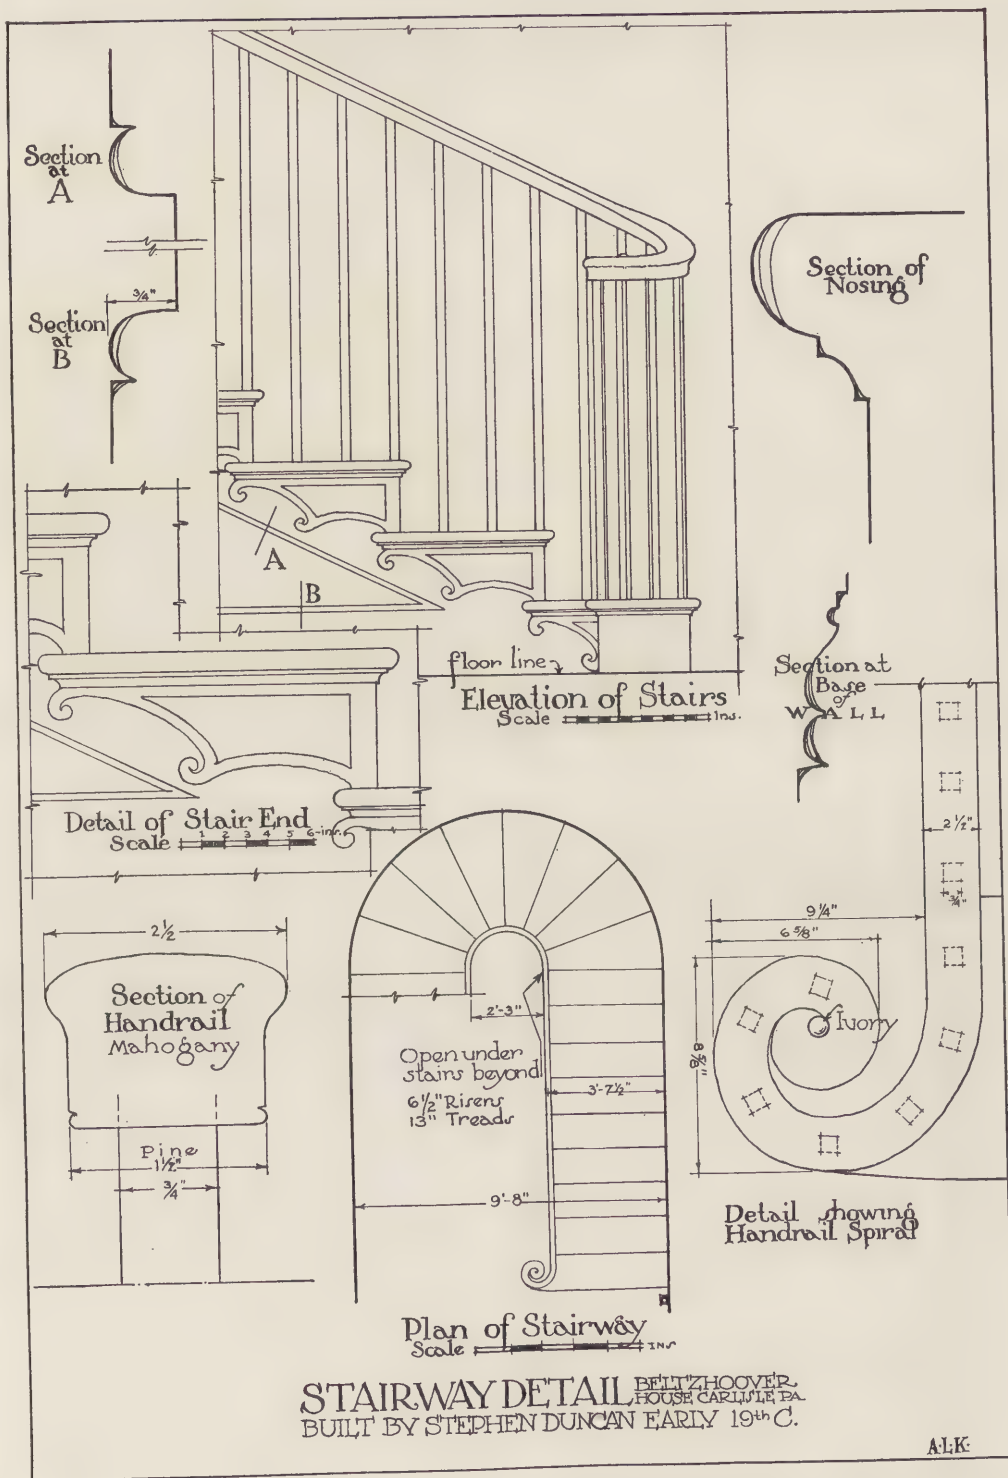 Section
at
A
3/4"
Section
at
B
Section of
Nosing
A
B
floor line
Elevation of Stairs
Scale Ins.
Section at
Base
of
WALL
Detail of Stair End
Scale 1 2 3 4 5 6-ins.
2 1/2
Section of
Handrail
Mahogany
Pine
1 1/2"
3/4"
2'-3"
Open under
stairs beyond
6 1/2" Risers
13" Treads
3'-7 1/2"
9'-8"
Plan of Stairway
Scale Ins
2 1/2"
3/4"
9 1/4"
6 5/8"
8 5/8"
Ivory
Detail showing
Handrail Spiral
STAIRWAY DETAIL BELTZHOOVER
HOUSE CARLISLE, PA.
BUILT BY STEPHEN DUNCAN EARLY 19th C.
A.L.K.